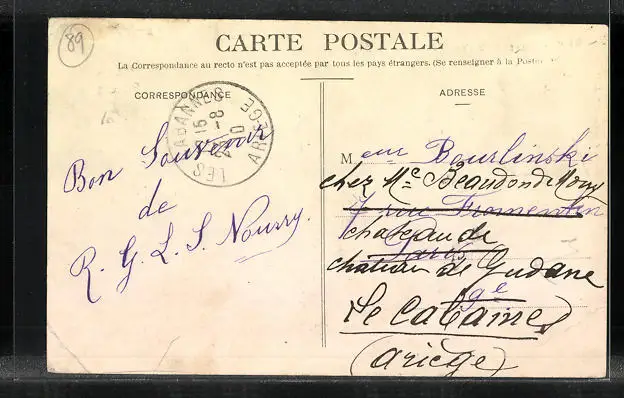 89
CARTE POSTALE
La Correspondance au recto n'est pas acceptée par tous les pays étrangers. (Se renseigner à la Poste
CORRESPONDANCE
ADRESSE
LES CABANNES
15 - 8
ARIEGE
Bon Souvenir
de
R. G. L. S. Nourry.
Meur Bourlinski
chez Mr Beaudon de Mony
7 rue Fromentin
chateau de
Paris
chateau de Gudane
ge
Le Cabannes
(ariège)